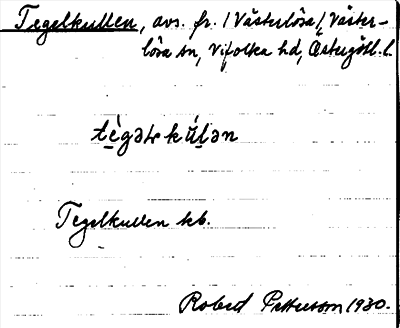 Tegelkullen, avs. fr. /Västerlösa/ Väster-
lösa sn, Vifolka hd, Östergötl. l.
tègəl kúlən
Tegelkullen kb.
Robert Pettersson 1930.